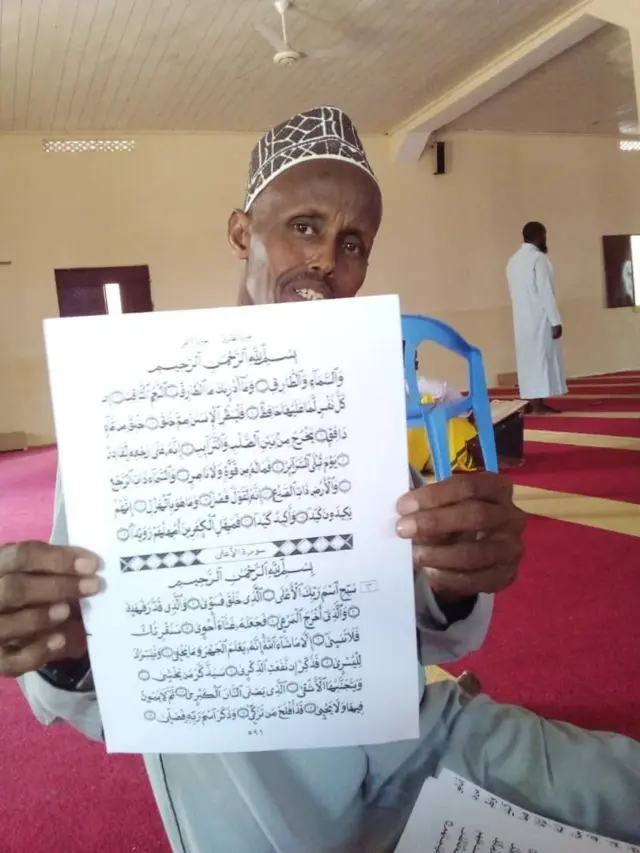 بِسْمِ ٱللَّهِ ٱلرَّحْمَٰنِ ٱلرَّحِيمِ
وَٱلسَّمَآءِ وَٱلطَّارِقِ ١ وَمَآ أَدْرَىٰكَ مَا ٱلطَّارِقُ ٢ ٱلنَّجْمُ ٱلثَّاقِبُ ٣ إِن
كُلُّ نَفْسٍ لَّمَّا عَلَيْهَا حَافِظٌ ٤ فَلْيَنظُرِ ٱلْإِنسَٰنُ مِمَّ خُلِقَ ٥ خُلِقَ مِن مَّآءٍ
دَافِقٍ ٦ يَخْرُجُ مِنۢ بَيْنِ ٱلصُّلْبِ وَٱلتَّرَآئِبِ ٧ إِنَّهُۥ عَلَىٰ رَجْعِهِۦ لَقَادِرٌ
٨ يَوْمَ تُبْلَى ٱلسَّرَآئِرُ ٩ فَمَا لَهُۥ مِن قُوَّةٍ وَلَا نَاصِرٍ ١٠ وَٱلسَّمَآءِ ذَاتِ ٱلرَّجْعِ
١١ وَٱلْأَرْضِ ذَاتِ ٱلصَّدْعِ ١٢ إِنَّهُۥ لَقَوْلٌ فَصْلٌ ١٣ وَمَا هُوَ بِٱلْهَزْلِ ١٤ إِنَّهُمْ
يَكِيدُونَ كَيْدًا ١٥ وَأَكِيدُ كَيْدًا ١٦ فَمَهِّلِ ٱلْكَٰفِرِينَ أَمْهِلْهُمْ رُوَيْدًۢا ١٧
سورة الأعلى
بِسْمِ ٱللَّهِ ٱلرَّحْمَٰنِ ٱلرَّحِيمِ
سَبِّحِ ٱسْمَ رَبِّكَ ٱلْأَعْلَى ١ ٱلَّذِى خَلَقَ فَسَوَّىٰ ٢ وَٱلَّذِى قَدَّرَ فَهَدَىٰ
٣ وَٱلَّذِىٓ أَخْرَجَ ٱلْمَرْعَىٰ ٤ فَجَعَلَهُۥ غُثَآءً أَحْوَىٰ ٥ سَنُقْرِئُكَ
فَلَا تَنسَىٰٓ ٦ إِلَّا مَا شَآءَ ٱللَّهُ إِنَّهُۥ يَعْلَمُ ٱلْجَهْرَ وَمَا يَخْفَىٰ ٧ وَنُيَسِّرُكَ
لِلْيُسْرَىٰ ٨ فَذَكِّرْ إِن نَّفَعَتِ ٱلذِّكْرَىٰ ٩ سَيَذَّكَّرُ مَن يَخْشَىٰ ١٠
وَيَتَجَنَّبُهَا ٱلْأَشْقَى ١١ ٱلَّذِى يَصْلَى ٱلنَّارَ ٱلْكُبْرَىٰ ١٢ ثُمَّ لَا يَمُوتُ
فِيهَا وَلَا يَحْيَىٰ ١٣ قَدْ أَفْلَحَ مَن تَزَكَّىٰ ١٤ وَذَكَرَ ٱسْمَ رَبِّهِۦ فَصَلَّىٰ ١٥
٥٩١